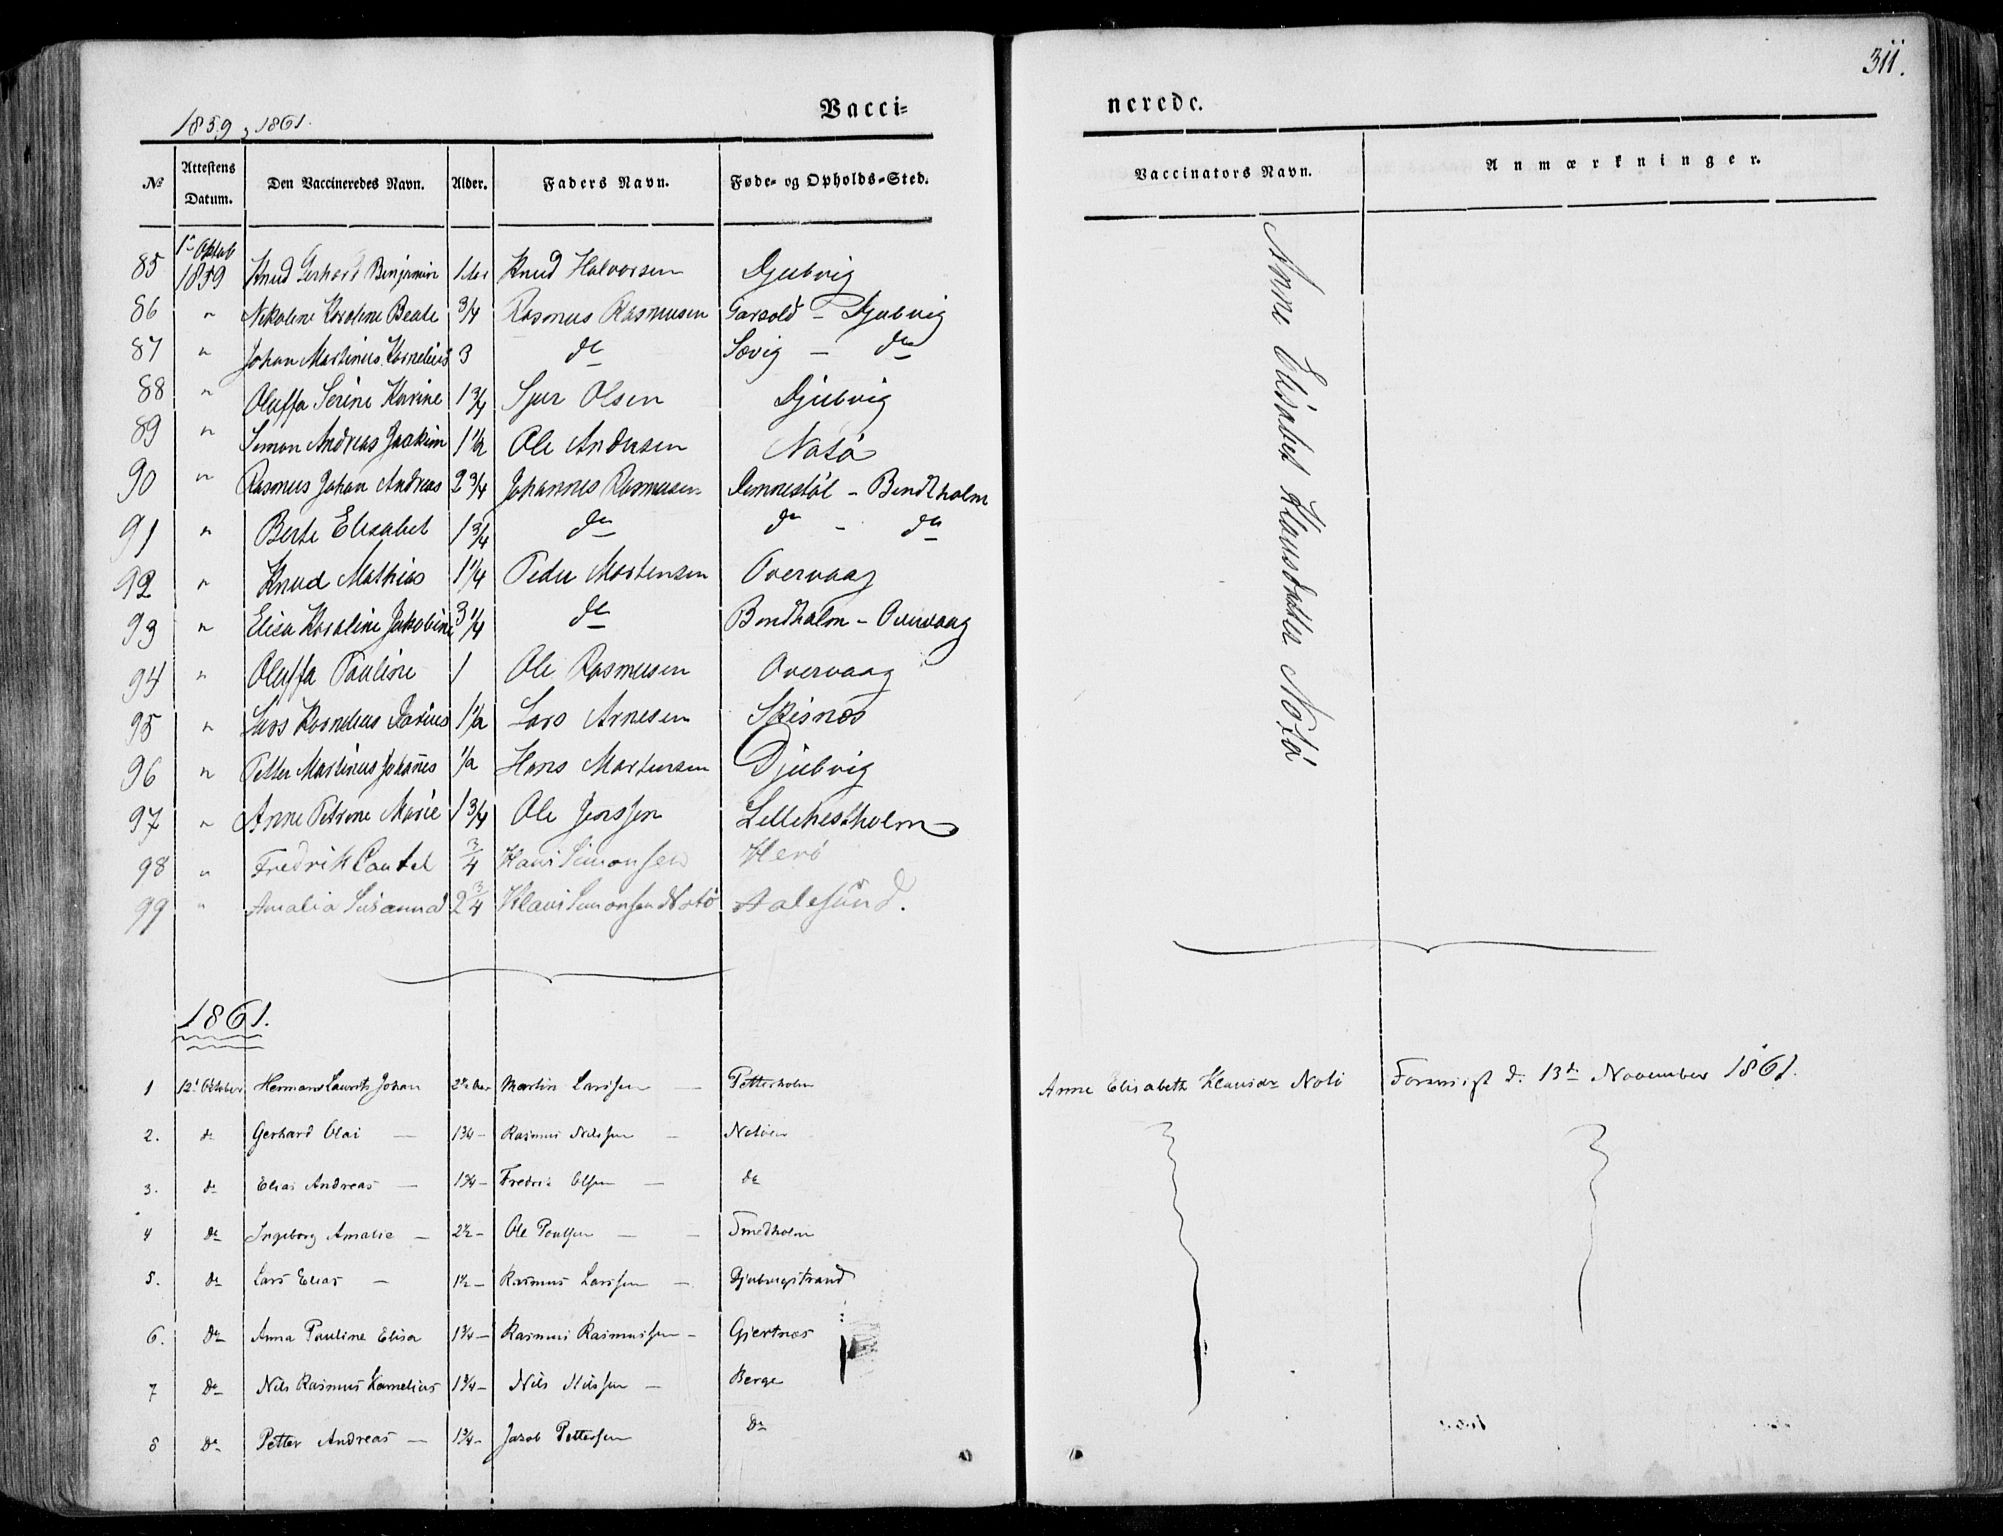 311.
1859, 1861.
Vacci=
nerede.
No
Attestens Datum.
Den Vaccineredes Navn.
Alder.
Faders Navn.
Føde= og Opholds=Sted.
Vaccinators Navn.
Anmærkninger.
85 1859 Knud Gerhard Benjamin 1 Knud Halvorsen Djubvig
86 " Nikoline Karoline Beate 3/4 Rasmus Rasmusen Garsold - Djubvig
87 " Johan Martinus Kornelius 3 do Sævig - do
88 " Oluffa Serine Karine 1 3/4 Sjur Olsen Djubvig
89 " Simon Andreas Joakim 1 1/2 Ole Andersen Notø
90 " Rasmus Johan Andreas 2 3/4 Johannes Rasmusen Demnestøl - Bendtholm
91 " Berte Elisabet 1 3/4 do do - do
92 " Knud Mathias 1 1/4 Peder Mortensen Overvaag
93 " Elisa Karoline Jakobine 3 1/4 do Bendholm - Overvaag
94 " Oluffa Pauline 1 Ole Rasmusen Overvaag
95 " Lars Kornelius Darius 1 1/2 Lars Arnesen Skisnæs
96 " Petter Martinus Johanes 1/2 Hans Mortensen Djubvig
97 " Anne Petrine Marie 1 3/4 Ole Jenssen Lillehestholm
98 " Fredrik Cantel 3/4 Klaus Simonsen Herø
99 " Amalia Susanna 2 3/4 Klaus Simonsen Notø Aalesund.
Anne Elisabet Klausdatter Notø
1861.
1 12t October Hermans Laurits Johan 2 1/2 Aar Martin Larssen - Petterholm Anne Elisabeth Klausdr Notö Foreviist d. 13de November 1861.
2. do Gerhard Olai - 1 3/4 - Rasmus Nilssen - Notöen
3. do Elias Andreas - 1 3/4 - Fredrik Olsen - do
4 do Ingeborg Amalie - 2 1/2 - Ole Poulsen - - Smedholm
5. do Lars Elias - 1 1/2 - Rasmus Larssen - Djubvigstrand
6. Do Anna Pauline Elisa 1 3/4 - Rasmus Rasmussen - Gjertnæs
7 Do Nils Rasmus Kornelius 1 3/4 - Nils Nilssen - Berge
8 Do Petter Andreas - 1 3/4 - Jacob Pettersen Do